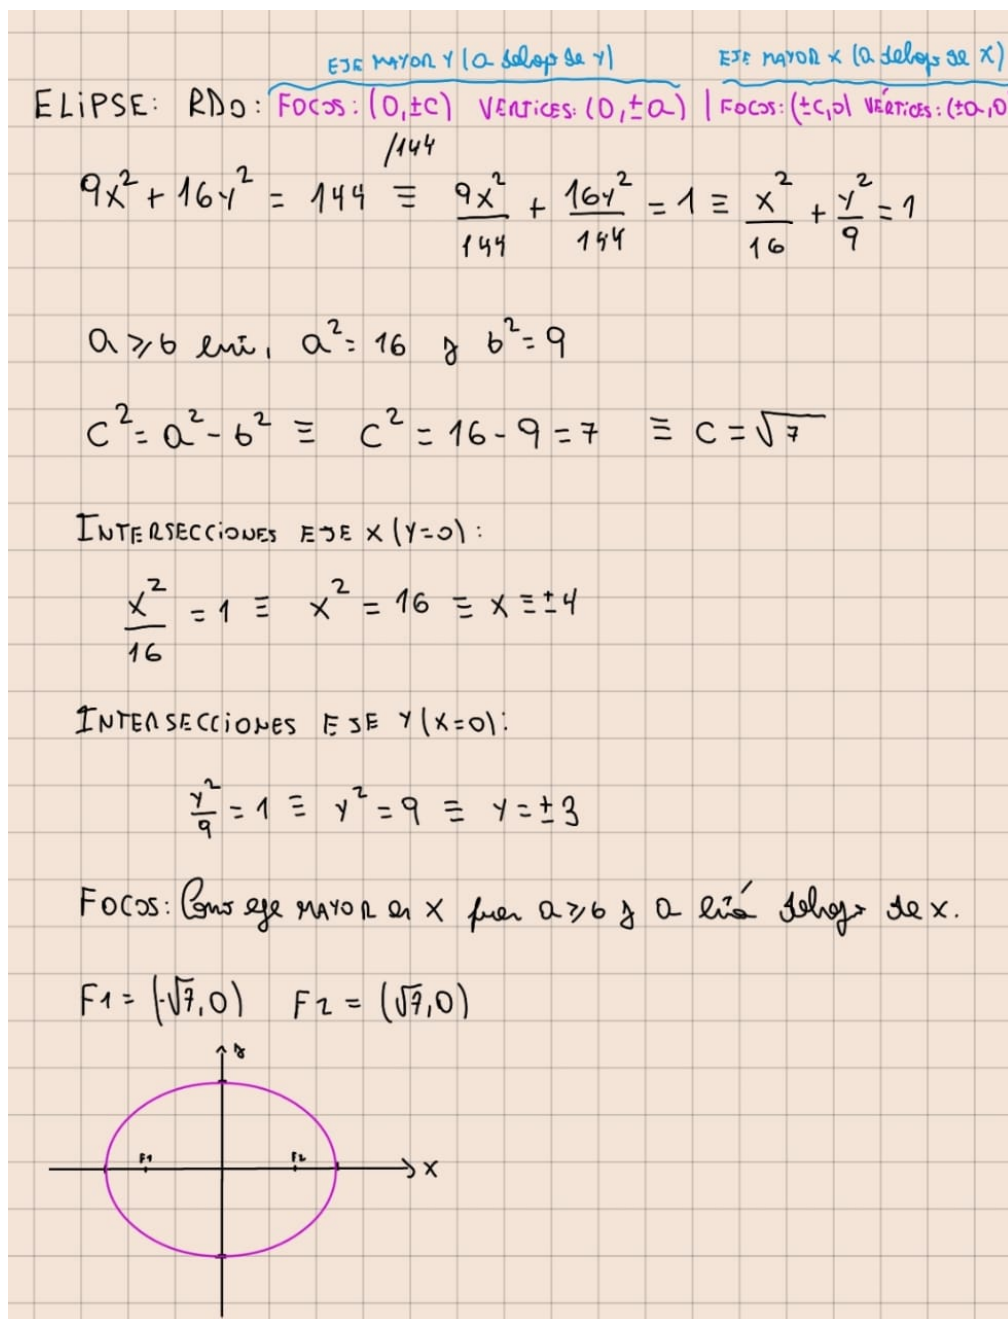 EJE MAYOR Y (a debajo de y) EJE MAYOR X (a debajo de x)
ELIPSE: RDO: FOCOS: (0,±c) VERTICES: (0,±a) | FOCOS: (±c,0) VÉRTICES: (±a,0
/144
9x² + 16y² = 144 ≡ 9x²/144 + 16y²/144 = 1 ≡ x²/16 + y²/9 = 1
a ≥ b a² = 16 y b² = 9
c² = a² - b² ≡ c² = 16 - 9 = 7 ≡ c = √7
INTERSECCIONES EJE X (Y=0):
x²/16 = 1 ≡ x² = 16 ≡ x = ±4
INTERSECCIONES EJE Y (X=0):
y²/9 = 1 ≡ y² = 9 ≡ y = ±3
FOCOS: Como eje MAYOR en X pues a ≥ b y a está debajo de x.
F1 = (-√7,0) F2 = (√7,0)
y
F1 F2
X